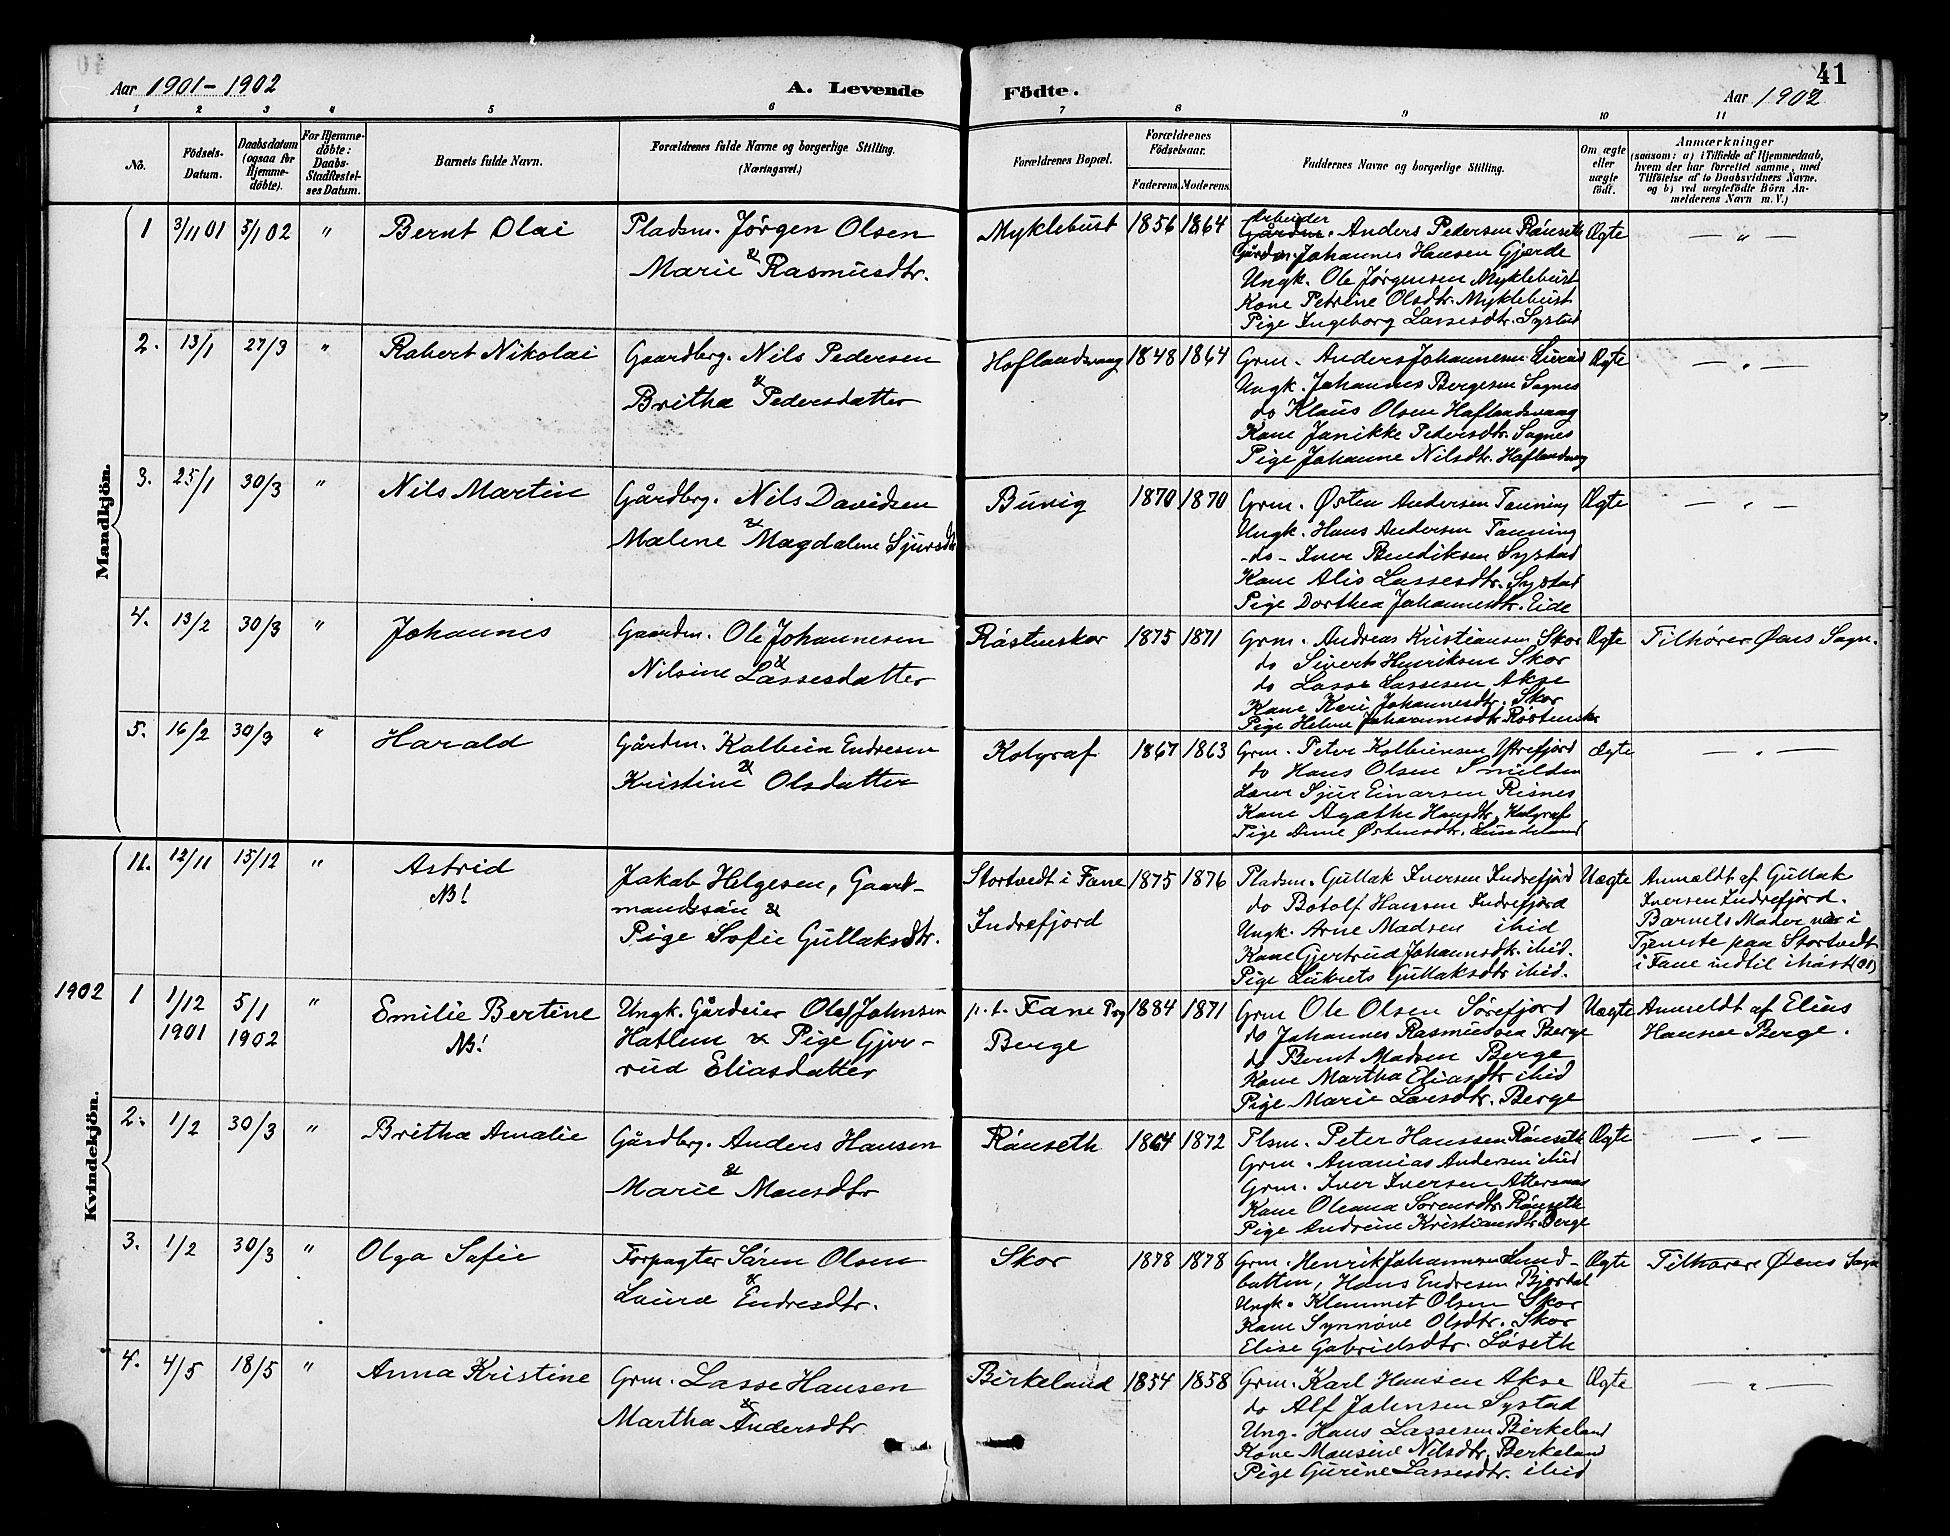 Aar 1901-1902
A. Levende Födte.
41
Aar 1902
1 2 3 4 5 6 7 8 9 10 11
No.
Födsels-Datum.
Daabsdatum (ogsaa for Hjemme-döbte).
For Hjemme-döbte: Daabs-Stadfæstel-ses Datum.
Barnets fulde Navn.
Forældrenes fulde Navne og borgerlige Stilling. (Næringsvei.)
Forældrenes Bopæl.
Forældrenes Födselsaar.
Faderens. Moderens.
Faddernes Navne og borgerlige Stilling.
Om ægte eller uægte födt.
Anmærkninger
(saasom: a) i Tilfælde af Hjemmedaab, hvem der har forrettet samme, med Tilföielse af to Daabsvidners Navne. og b) ved uægtefödte Börn An-melderens Navn m. V.)
Mandkjön.
1 3/11 01 5/1 02 " Bernt Olai
Pladsm. Jørgen Olsen
& Marie Rasmusdtr.
Myklebust 1856 1864
Arbeider
Gårdm. Anders Pedersen Rånseth
Gårdm. Johannes Hansen Gjærde
Ungk. Ole Jørgensen Myklebust
Kone Petrine Olsdtr. Myklebust
Pige Ingeborg Lassesdtr. Systad
Ægte — " —
2. 13/1 27/3 " Robert Nikolai
Gaardbrg. Nils Pedersen
& Britha Pedersdatter
Hoflandsvaag 1848 1864
Grm. Anders Johannesen
Ungk. Johannes Bergesen Sognes
do Klaus Olsen Haflandsvaag
Kone Janikke Pedersdtr. Sognes
Pige Johanne Nilsdtr. Haflandsvag
Ægte — " —
3. 25/1 30/3 " Nils Martin
Gårdbrg. Nils Davidsen
& Malene Magdalene Sjursdtr
Buvig 1870 1870
Grm. Østen Andersen Tanning
Ungk. Hans Andersen Tanning
-do- Iver Bendiksen Systad
Kone Alis Lassesdtr. Systad
Pige Dorthea Johannesdtr. Eide
Ægte — " —
4. 13/2 30/3 " Johannes
Gaardm. Ole Johannesen
& Nilsine Lassesdatter
Råstenskar 1875 1871
Grm. Andreas Kristiansen Skor
do Sivert Henriksen Skor
do Lasse Lassesen Akse
Kone Kari Johannesdtr. Skor
Pige Helene Johannesdtr Råstenskar
Ægte Tilhører Øens Sogn.
5. 16/2 30/3 " Harald
Gårdm. Kolbein Endresen
& Kristine Olsdatter
Kolgraf 1867 1863
Grm. Peter Kolbeinsen Ytrefjord
do Hans Olsen Smilden
Lærer Sjur Einarsen Risnes
Kone Agathe Hansdtr. Kolgraf
Pige Østensdtr.
Ægte — " —
Kvindekjön.
11. 12/11 15/12 " Astrid
NB!
Jakob Helgesen, Gaard-
mandssøn &
Pige Sofie Gullaksdtr.
Stortvedt i Fane
Indrefjord
1875 1876
Pladsm. Gullak Iversen Indrefjord
do Botolf Hansen Indrefjord
Ungk. Arne Madsen ibid
Kone Gjertrud Johannsdtr. ibid.
Pige Lukrets Gullaksdtr ibid.
Uægte
Anmældt af Gullak
Iversen Indrefjord.
Barnets Moder var i
Tjeneste paa Stortvedt
i Fane indtil ihöst (01)
1902
1 1/12 1901 5/1 1902 " Emilie Bertine
NB!
Ungk. Gårdeier Olaf Johnsen
Hatlem & Pige Gjer-
rud Eliasdatter
p.t. Fane Prg
Berge
1884 1871
Grm Ole Olsen Sørefjord
do Johannes Rasmussen Berge
do Bernt Madsen Berge
Kone Martha Eliasdtr ibid
Pige Marie Larsdtr. Berge
Uægte
Anmeldt af Elias
Hansen Berge.
2. 1/2 30/3 " Britha Amalie
Gårdbrg. Anders Hansen
& Marie Monsdtr
Rånseth 1864 1872
Plsm. Peter Hanssen Rånseth
Grm. Ananias Andersen ibid
Grm. Iver Iversen Attersnes
Kone Oleana Sørensdtr. Rånseth
Pige Andrine Kristiansdtr. Berge
Ægte — " —
3. 1/2 30/3 " Olga Sofie
Forpagter Sören Olsen
& Laura Endresdtr.
Skor 1878 1878
Grm. Henrik Johannesen Lund-
botten, Hans Endresen Bjortal
Ungk. Klemmet Olsen Skor
Kone Synnøve Olsdtr. Skor
Elise Gabrielsdtr. Løseth
Ægte Tilhører Øens Sogn
4. 4/5 18/5 " Anna Kristine
Grm. Lasse Hansen
& Martha Andersdtr
Birkeland 1854 1858
Grm. Karl Hansen Akse
do Alf Johnsen Systad
Ung. Hans Lassesen Birkeland
Kone Monsine Nilsdtr. Berkeland
Pige Gurine Lassesdtr. ibid
Ægte — " —